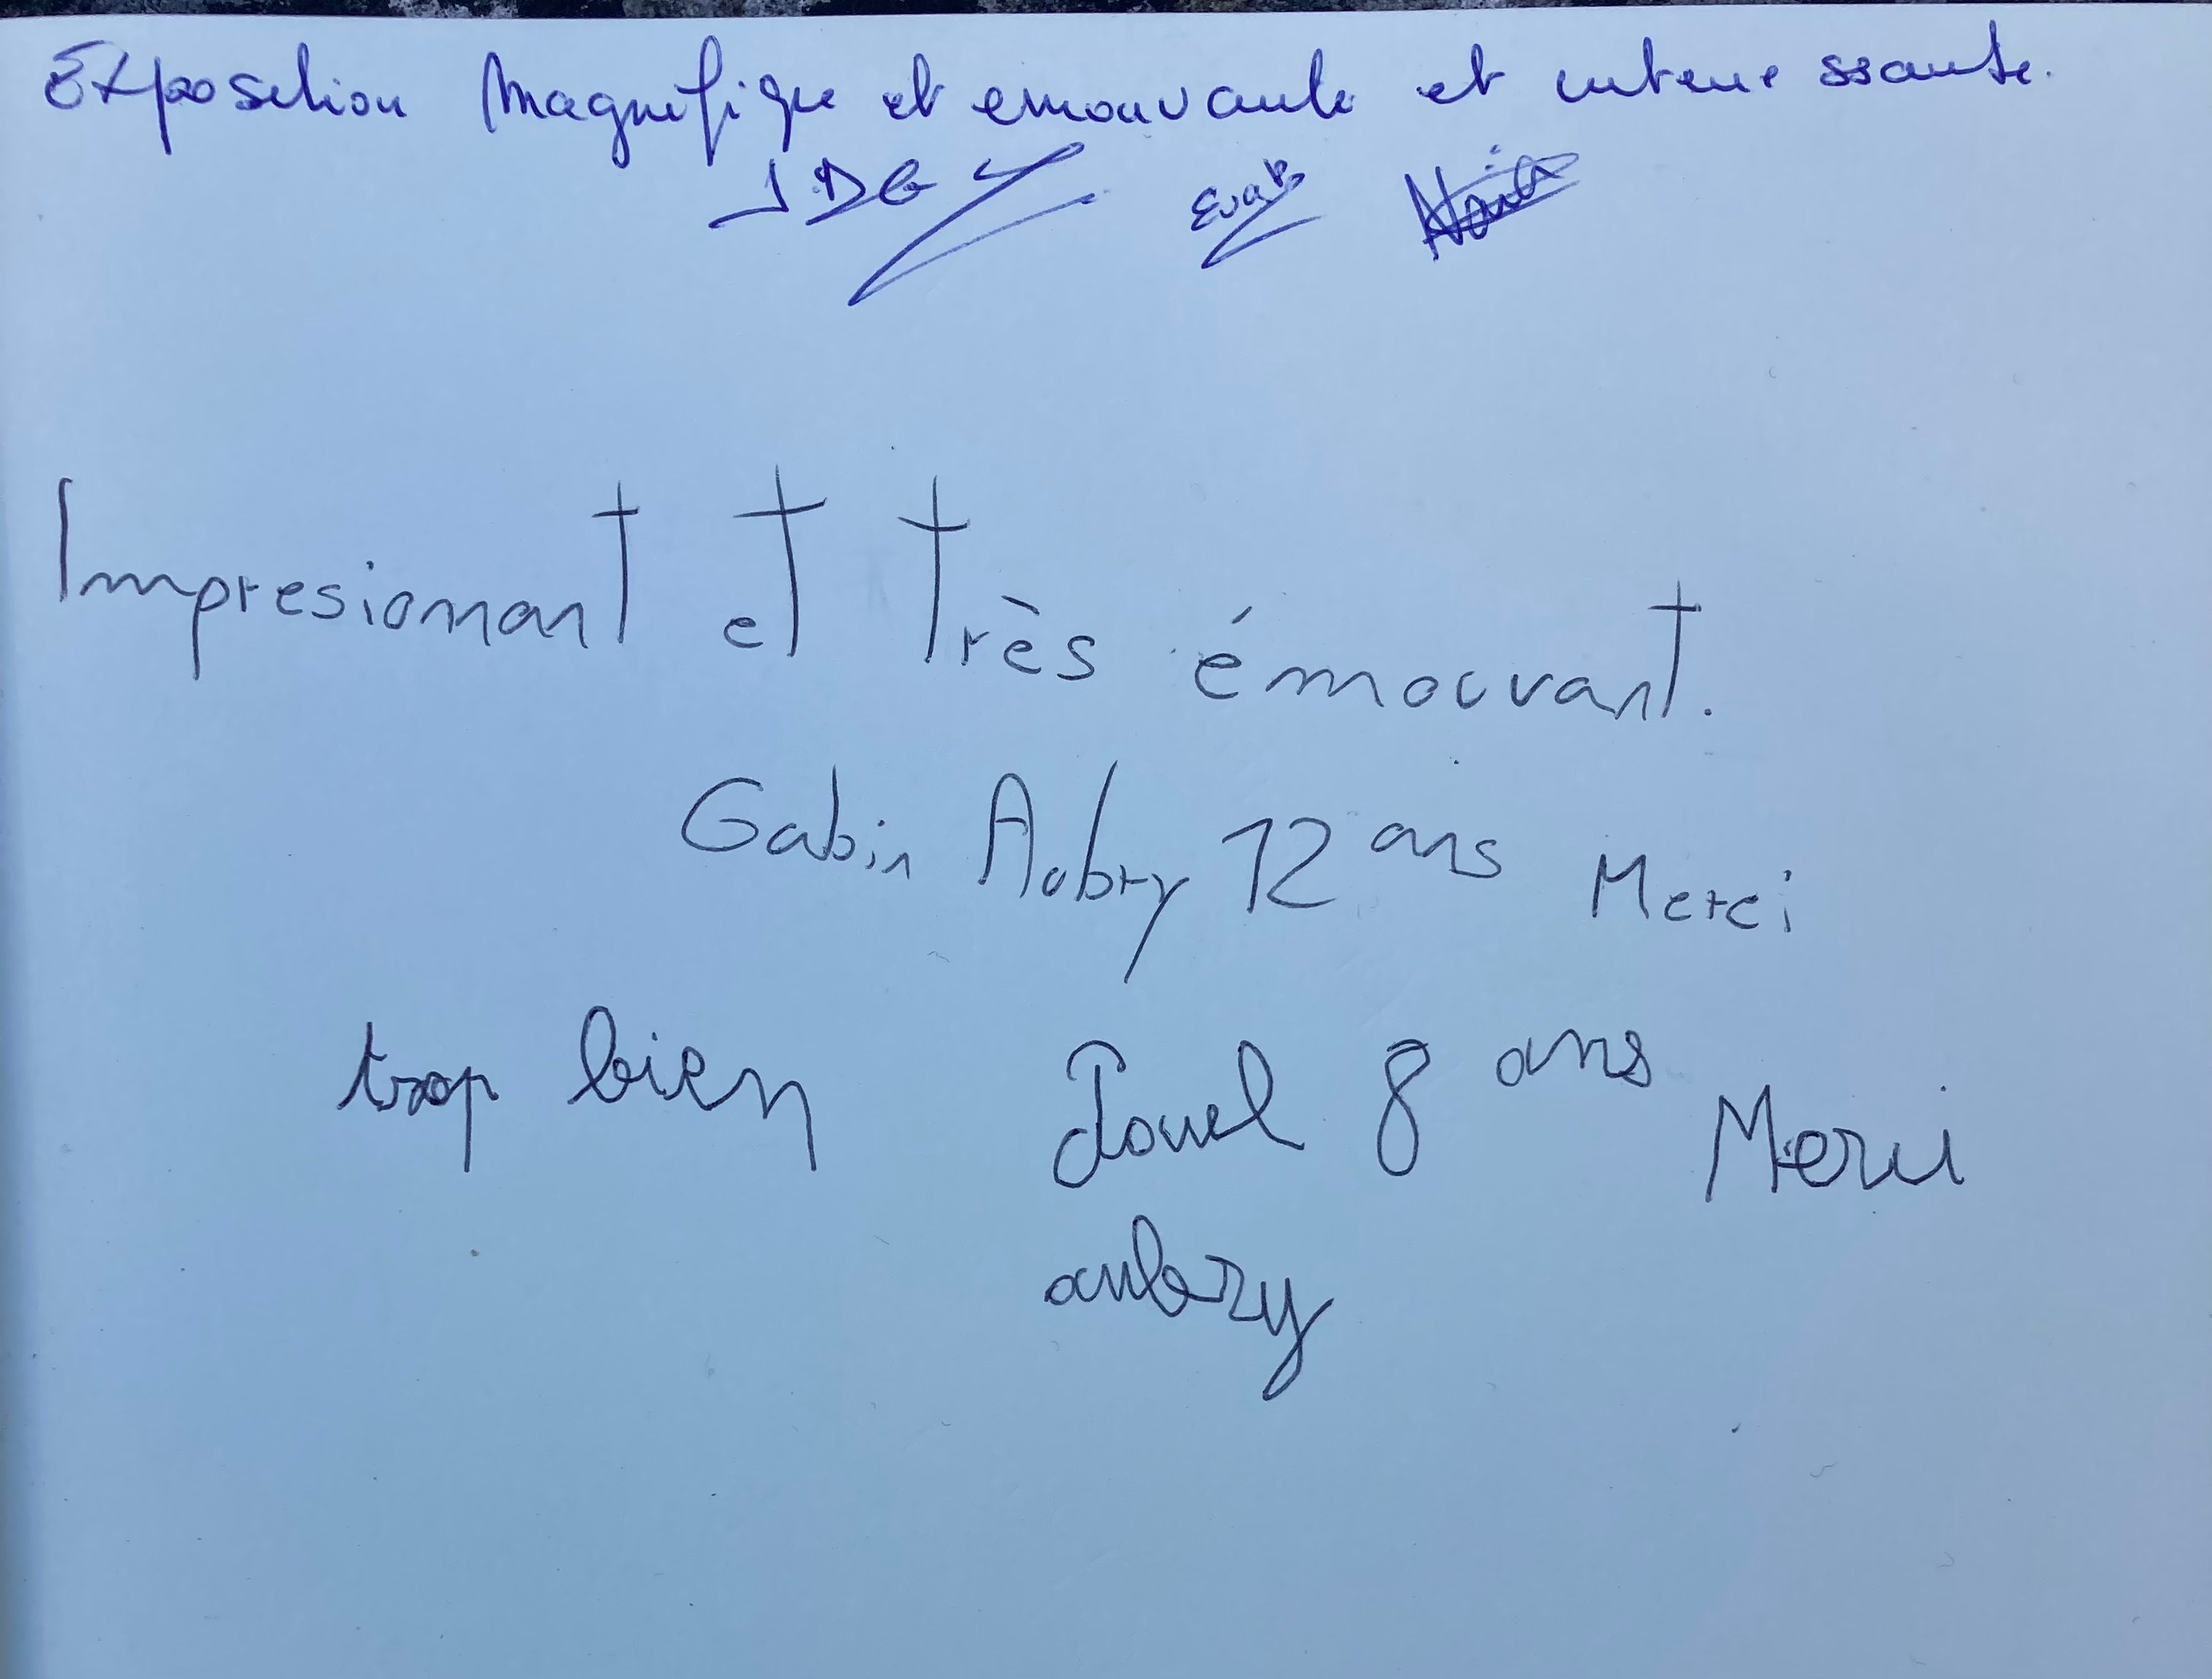 Exposition Magnifique et emouvante et interessante.
JDG Eva
Impresionant et très émouvant.
Gabin Aubry 12 ans Merci
trop bien 8 ans Merci
aubry